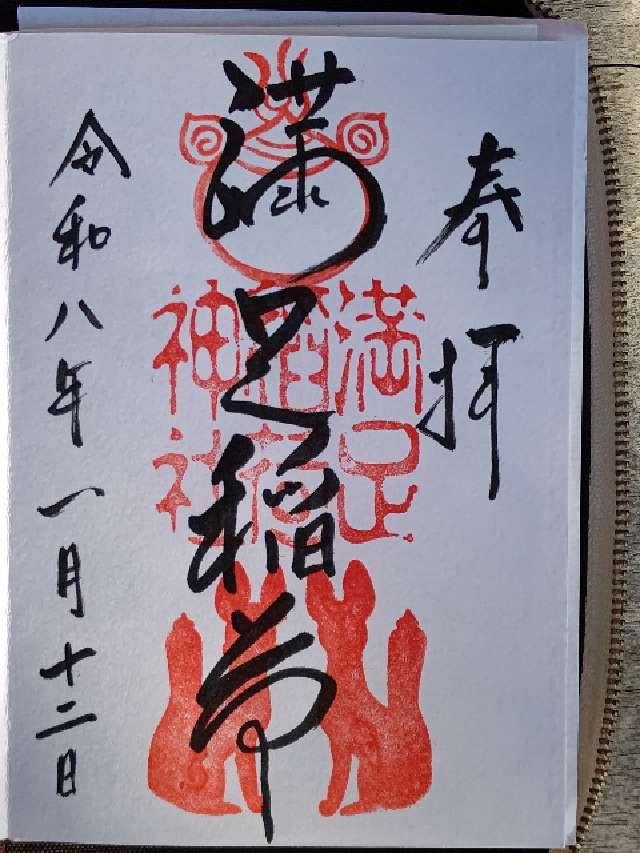 奉拝
満足稲荷
満足
稲荷
神社
令和八年一月十二日